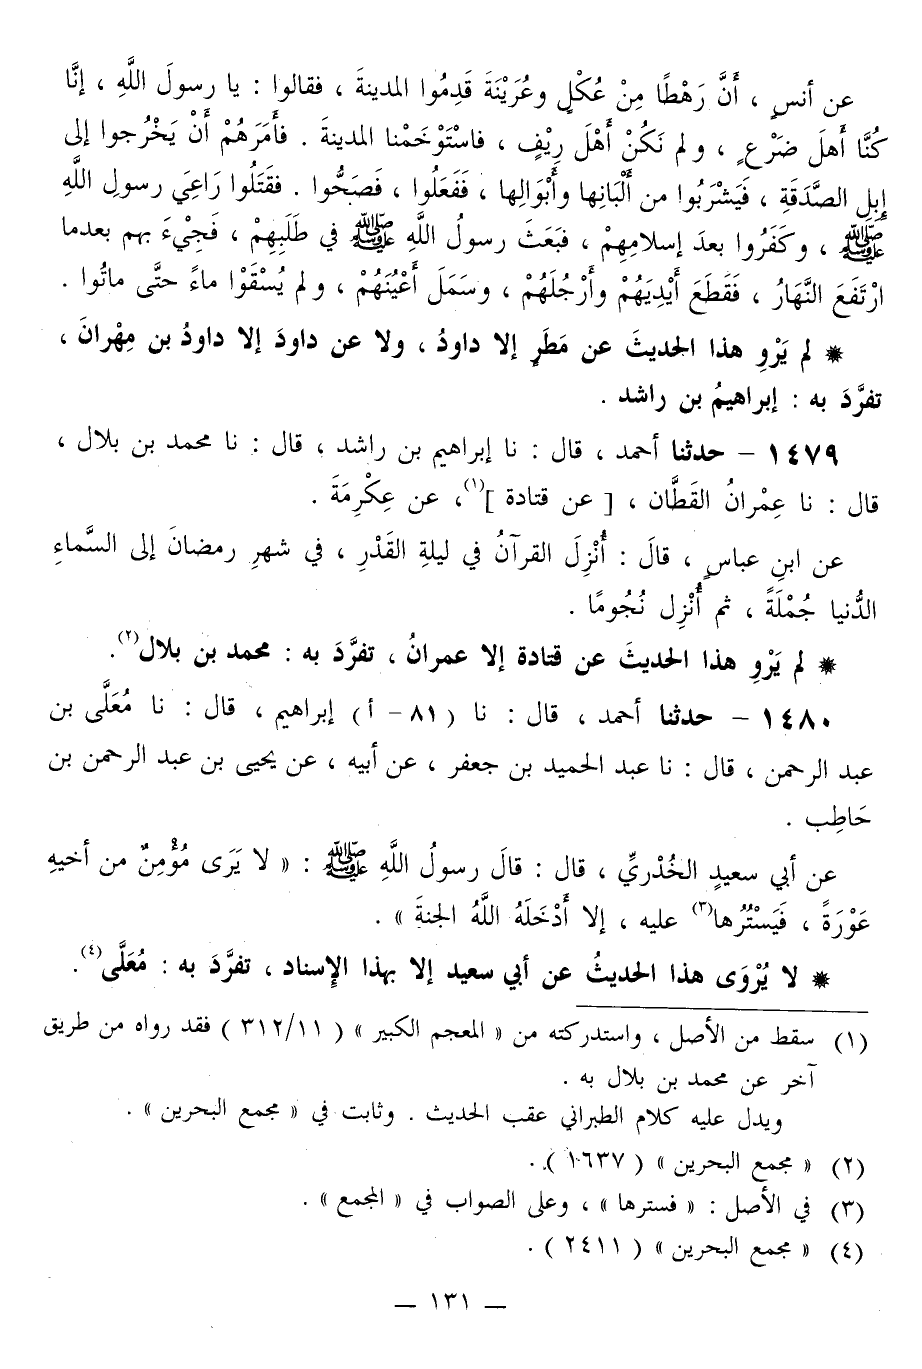 عن أنسٍ ، أَنَّ رَهْطًا مِنْ عُكْلٍ وعُرَيْنَةَ قَدِمُوا المدينةَ ، فقالوا : يا رسولَ اللَّهِ ، إِنَّا
كُنَّا أَهلَ ضَرْعٍ ، ولم نَكُنْ أَهْلَ رِيْفٍ ، فاسْتَوْخَمْنا المدينةَ . فأَمَرَهُمْ أَنْ يَخْرُجوا إلى
إبلِ الصَّدَقَةِ ، فَيَشْرَبُوا من أَلْبَانِها وأَبْوَالِها ، فَفَعَلُوا ، فَصَحُّوا . فقَتَلُوا رَاعِيَ رسولِ اللَّهِ
ﷺ ، وكَفَرُوا بعدَ إسلامِهِمْ ، فبَعَثَ رسولُ اللَّهِ ﷺ في طَلَبِهِمْ ، فَجِيْءَ بهم بعدما
ارْتَفَعَ النَّهَارُ ، فَقَطَعَ أَيْدِيَهُمْ وأَرْجُلَهُمْ ، وسَمَلَ أَعْيُنَهُمْ ، ولم يُسْقَوْا ماءً حتَّى ماتُوا .
* لم يَرْوِ هذا الحديثَ عن مَطَرٍ إلا داودُ ، ولا عن داودَ إلا داودُ بن مِهْرانَ ،
تفرَّدَ به : إبراهيمُ بن راشد .
١٤٧٩ - حدثنا أحمد ، قال : نا إبراهيم بن راشد ، قال : نا محمد بن بلال ،
قال : نا عِمْرانُ القَطَّان ، [ عن قتادة ](١)، عن عِكْرِمَةَ .
عن ابنِ عباسٍ ، قالَ : أُنْزِلَ القرآنُ في ليلةِ القَدْرِ ، في شهرِ رمضانَ إلى السَّماءِ
الدُّنيا جُمْلَةً ، ثم أُنْزِل نُجُومًا .
* لم يَرْوِ هذا الحديثَ عن قتادة إلا عمرانُ ، تفرَّدَ به : محمد بن بلال(٢).
١٤٨٠ - حدثنا أحمد ، قال : نا ( ٨١ - أ ) إبراهيم ، قال : نا مُعَلَّى بن
عبد الرحمن ، قال : نا عبد الحميد بن جعفر ، عن أبيه ، عن يحيى بن عبد الرحمن بن
حَاطِب .
عن أبي سعيدٍ الخُدْريِّ ، قال : قالَ رسولُ اللَّهِ ﷺ : « لا يَرَى مُؤْمِنٌ من أخيهِ
عَوْرَةً ، فَيَسْتُرُها(٣) عليه ، إلا أَدْخَلَهُ اللَّهُ الجنةَ » .
* لا يُرْوَى هذا الحديثُ عن أبي سعيد إلا بهذا الإسناد ، تفرَّدَ به : مُعَلَّى(٤).
(١) سقط من الأصل ، واستدركته من « المعجم الكبير » ( ٣١٢/١١ ) فقد رواه من طريق
آخر عن محمد بن بلال به .
ويدل عليه كلام الطبراني عقب الحديث . وثابت في « مجمع البحرين » .
(٢) « مجمع البحرين » ( ١٦٣٧ ) .
(٣) في الأصل : « فسترها » ، وعلى الصواب في « المجمع » .
(٤) « مجمع البحرين » ( ٢٤١١ ) .
— ١٣١ —